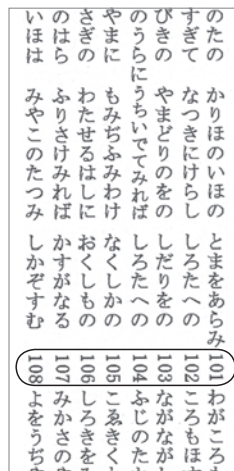 のたの かりほのいほの とまをあらみ 101 わがころ
すぎて なつきにけらし しろたへの 102 ころもほ
びきの やまどりのをの しだりをの 103 ながなが
のうらに うちいでてみれば しろたへの 104 ふじのた
やまに もみぢふみわけ なくしかの 105 こゑきく
さぎの わたせるはしに おくしもの 106 しろきを
のはら ふりさけみれば かすがなる 107 みかさの
いほは みやこのたつみ しかぞすむ 108 よをうぢ